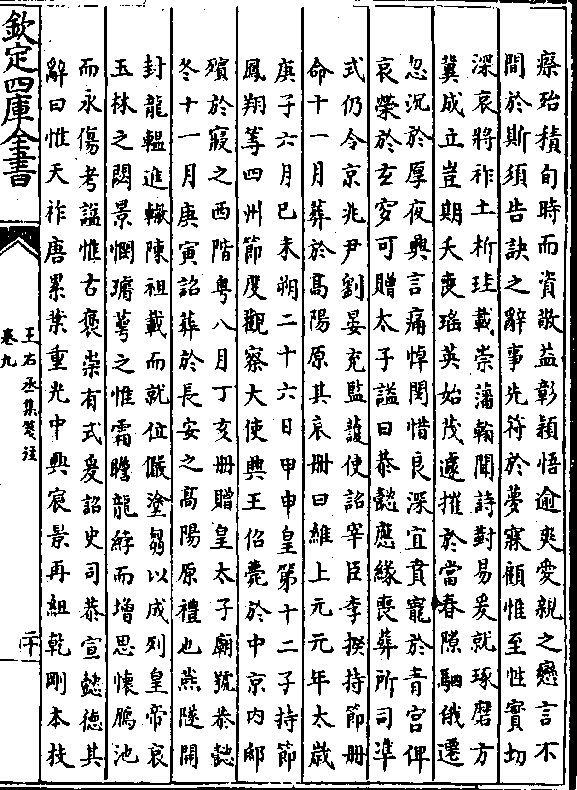 療殆積旬時而資敬益彰穎悟逾爽愛親之戀言不
間於斯須告訣之辭事先符於夢寐顧惟至性實切
深哀將祚土析珪載崇藩翰聞詩對易爰就琢磨方
冀成立豈期夭喪瑤英始茂遽摧於當春隙駟俄遷
忽沉於厚夜興言痛悼閔惜良深宜賁寵於青宮俾
哀榮於玄穸可贈太子諡曰恭懿應緣喪葬所司準
式仍令京兆尹劉晏充監護使詔宰臣李揆持節冊
命十一月葬於高陽原其哀冊曰維上元元年太歲
庚子六月己未朔二十六日甲申皇第十二子持節
鳳翔等四州節度觀察大使興王佋薨於中京內邸
殯於寢之西階粵八月丁亥冊贈皇太子廟號恭懿
冬十一月庚寅詔葬於長安之高陽原禮也燕隧開
封龍輴進轍陳祖載而就位儼塗芻以成列皇帝哀
玉林之閟景惻瓊萼之惟霜瞻龍綍而增思懷鴈池
而永傷考諡惟古褒崇有式爰詔史司恭宣懿德其
辭曰惟天祚唐累葉重光中興宸景再紐乾剛本枝
欽定四庫全書
王右丞集箋注
卷九
二十